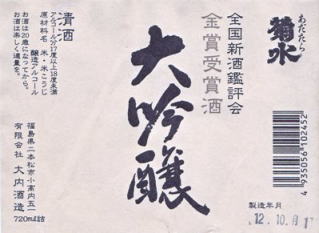 あだたら
菊水
全国新酒鑑評会
金賞受賞酒
大吟醸
清酒
アルコール分17度以上18度未満
原材料名 米・米こうじ
醸造アルコール
お酒は20歳になってから。
お酒は楽しく適量を。
福島県二本松市小高内五一
有限会社 大内酒造
720ml詰
4 935056 102452
製造年月
12.10.